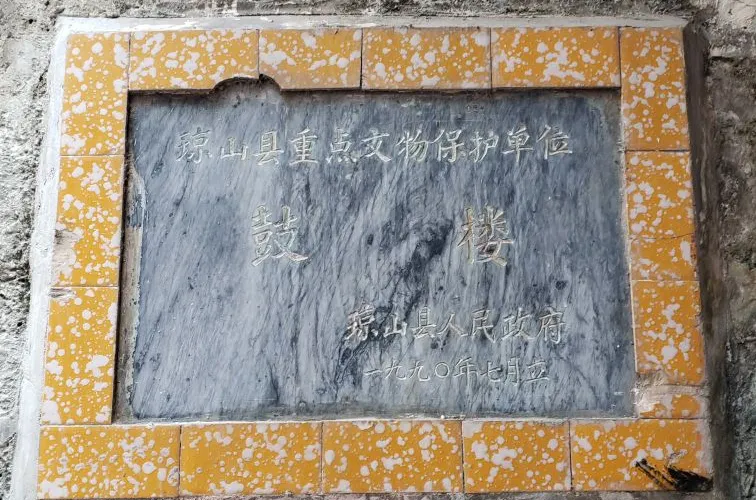 琼山县重点文物保护单位
鼓楼
琼山县人民政府
一九九〇年七月立